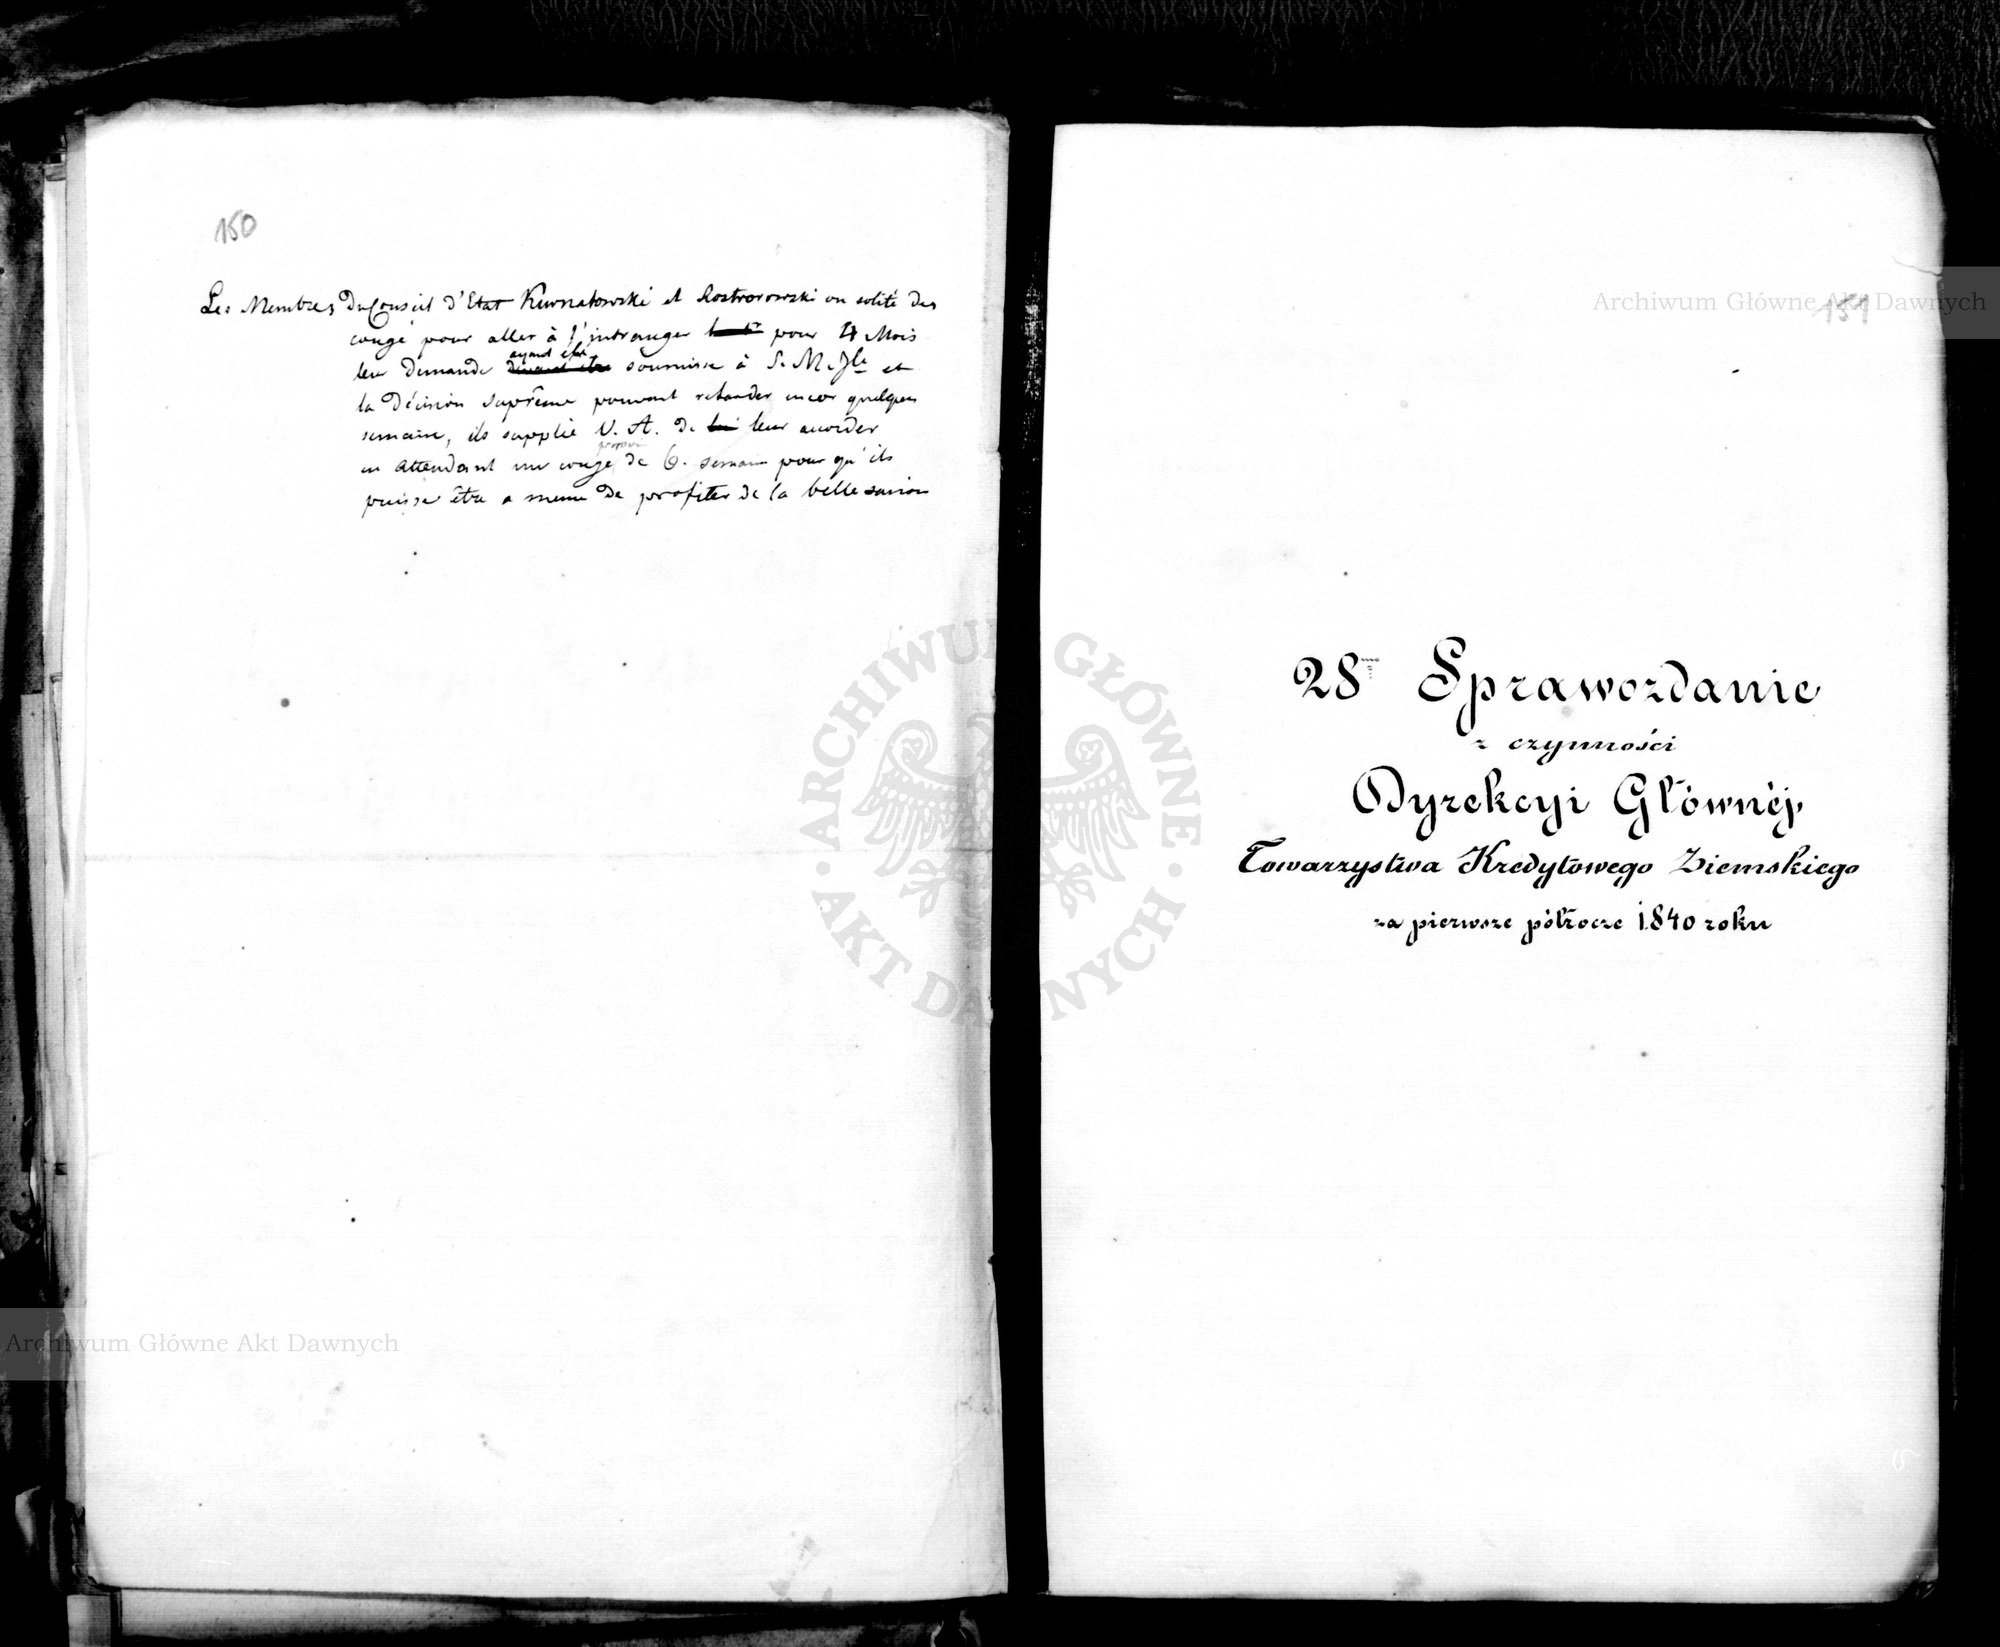 150
Les Membres Du Conseil d'Etat Kurnatowski et Rostworowski on solité des
congé pour aller à l'intranger pour 4 Mois
leu demande ayant été soumise à S. M. Jle et
la Décision Suprême pouvant retarder encor quelques
semaine, ils supplie V. A. de leur accorder
en attendant un congé de 6. semain pour qu'ils
puisse être a meme de profiter de la belle saison
151
28me Sprawozdanie
z czynności
Dyrekcyi Głównéj
Towarzystwa Kredytowego Ziemskiego
za pierwsze półrocze 1840 roku
Archiwum Główne Akt Dawnych
Archiwum Główne Akt Dawnych
ARCHIWUM GŁÓWNE
AKT DAWNYCH